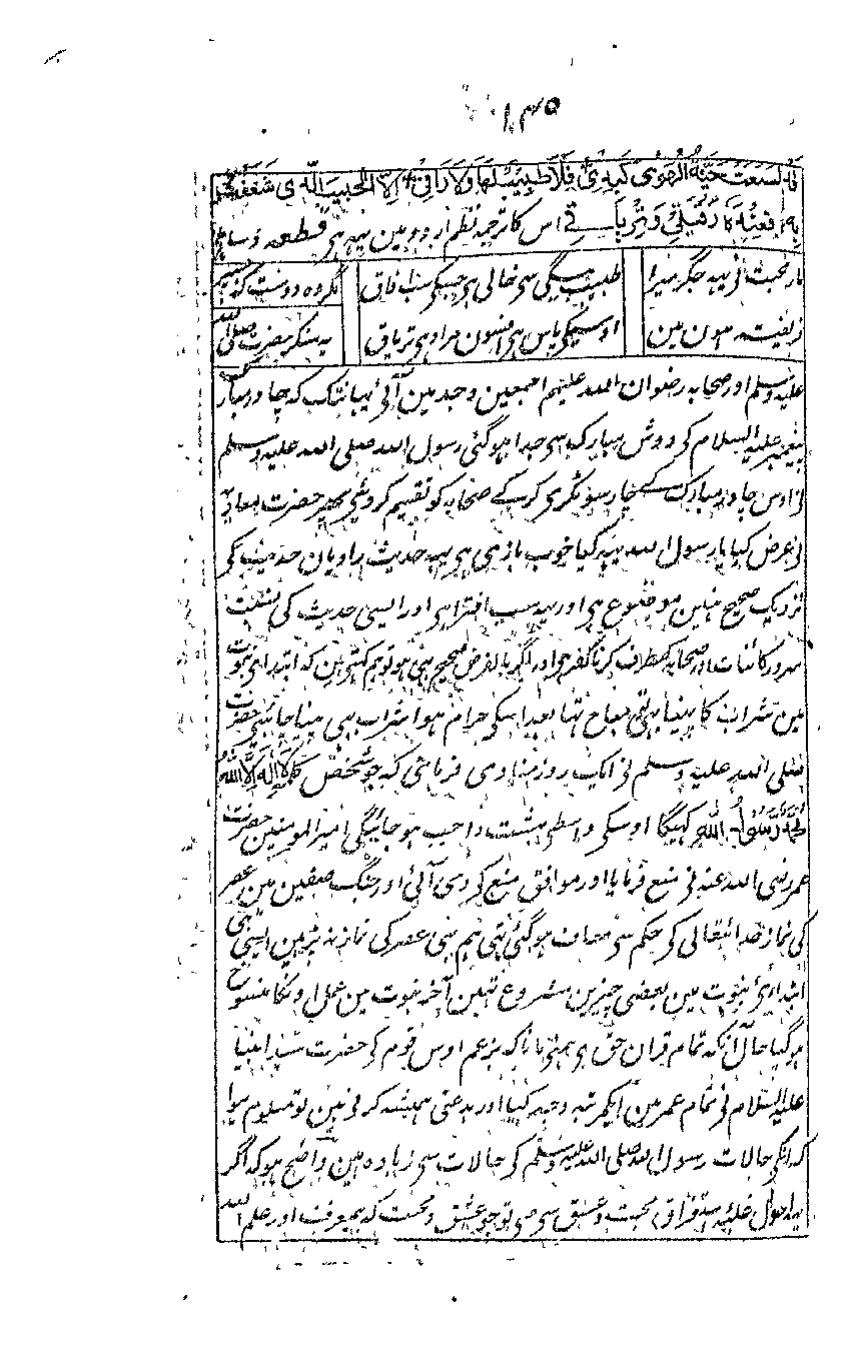 ۱۳۵
قَدْ لَسَعَتْ حَيَّةُ الْهَوٰى كَبِدِىْ فَلَا طَبِيْبَ لَهَا وَلَا رَاقِىْ اِلَّا الْحَبِيْبُ الَّذِىْ شَغَفْتُ
بِهٖ فَعِنْدَهٗ رُقْيَتِىْ وَتِرْيَاقِىْ اس کا ترجمہ نظم اردو مین یہہ ہی قطعہ
مار محبت نی یہہ جگر میرا طبیب سی خالی ہی جسکی سب آفاق مگر وہ دوست کہ
فریفتہ ہون مین اوسیکی پاس ہی افسون مرا و ہی تریاق یہ سنکر حضرت صلی اللہ
علیہ وسلم اور صحابہ رضوان اللہ علیہم اجمعین وجد مین آئی یہانتک کہ چادر مبارک
پیغمبر علیہ السلام کی دوش مبارک سی جدا ہو گئی رسول اللہ صلی اللہ علیہ وسلم
نی اوس چادر مبارک کے چار سو ٹکری کر کے صحابہ کو تقسیم کر دئی پھر حضرت معاویہ
نی عرض کیا یا رسول اللہ یہہ کیا خوب بازی ہی یہہ حدیث راویان حدیث کی
نزدیک صحیح نہین موضوع ہی اور یہہ سب افترا ہی اور ایسی حدیث کی نسبت
سرور کائنات اور صحابہ کیطرف کرنا کفر ہی اور اگر بالفرض صحیح بہی ہو تو ہم کہتی ہین کہ ابتدای نبوت
مین شراب کا پینا بہی مباح تہا بعد اسکی حرام ہوا شراب بہی پینا چاہئی حضرت
صلی اللہ علیہ وسلم نی ایک روز منادی فرمائی کہ جو شخص کلمہ لَا اِلٰهَ اِلَّا اللهُ
مُحَمَّدٌ رَّسُوْلُ اللهِ کہیگا اوسکی واسطی بہشت واجب ہو جائیگی امیر المومنین حضرت
عمر رضی اللہ عنہ نی منع فرمایا اور موافق منع کی وحی آئی اور جنگ صفین مین عصر
کی نماز خدا تعالی کی حکم سی معاف ہو گئی تہی ہم بہی عصر کی نماز نہ پڑہین ایسی ہی
ابتدای نبوت مین بعضی چیزین مشروع تہین آخر نبوت مین عمل اونکا منسوخ
ہو گیا حال آنکہ تمام قران حق ہی ہمنی مانا کہ بزعم اوس قوم کی حضرت سید انبیا
علیہ السلام نی تمام عمر مین ایکمرتبہ وجد کیا اور بدعتی ہمیشہ کرتی ہین تو معلوم ہوا
کہ انکی حالات رسول اللہ صلی اللہ علیہ وسلم کی حالات سی زیادہ ہین واضح ہو کہ اگر
یہہ احوال غلبہ استغراق محبت و عشق سی ہی تو جو عشق و محبت کہ بمعرفت اور علم اللہ